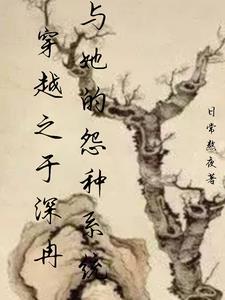 穿越之于深冉
与她的怨种系统
日常熬夜 著